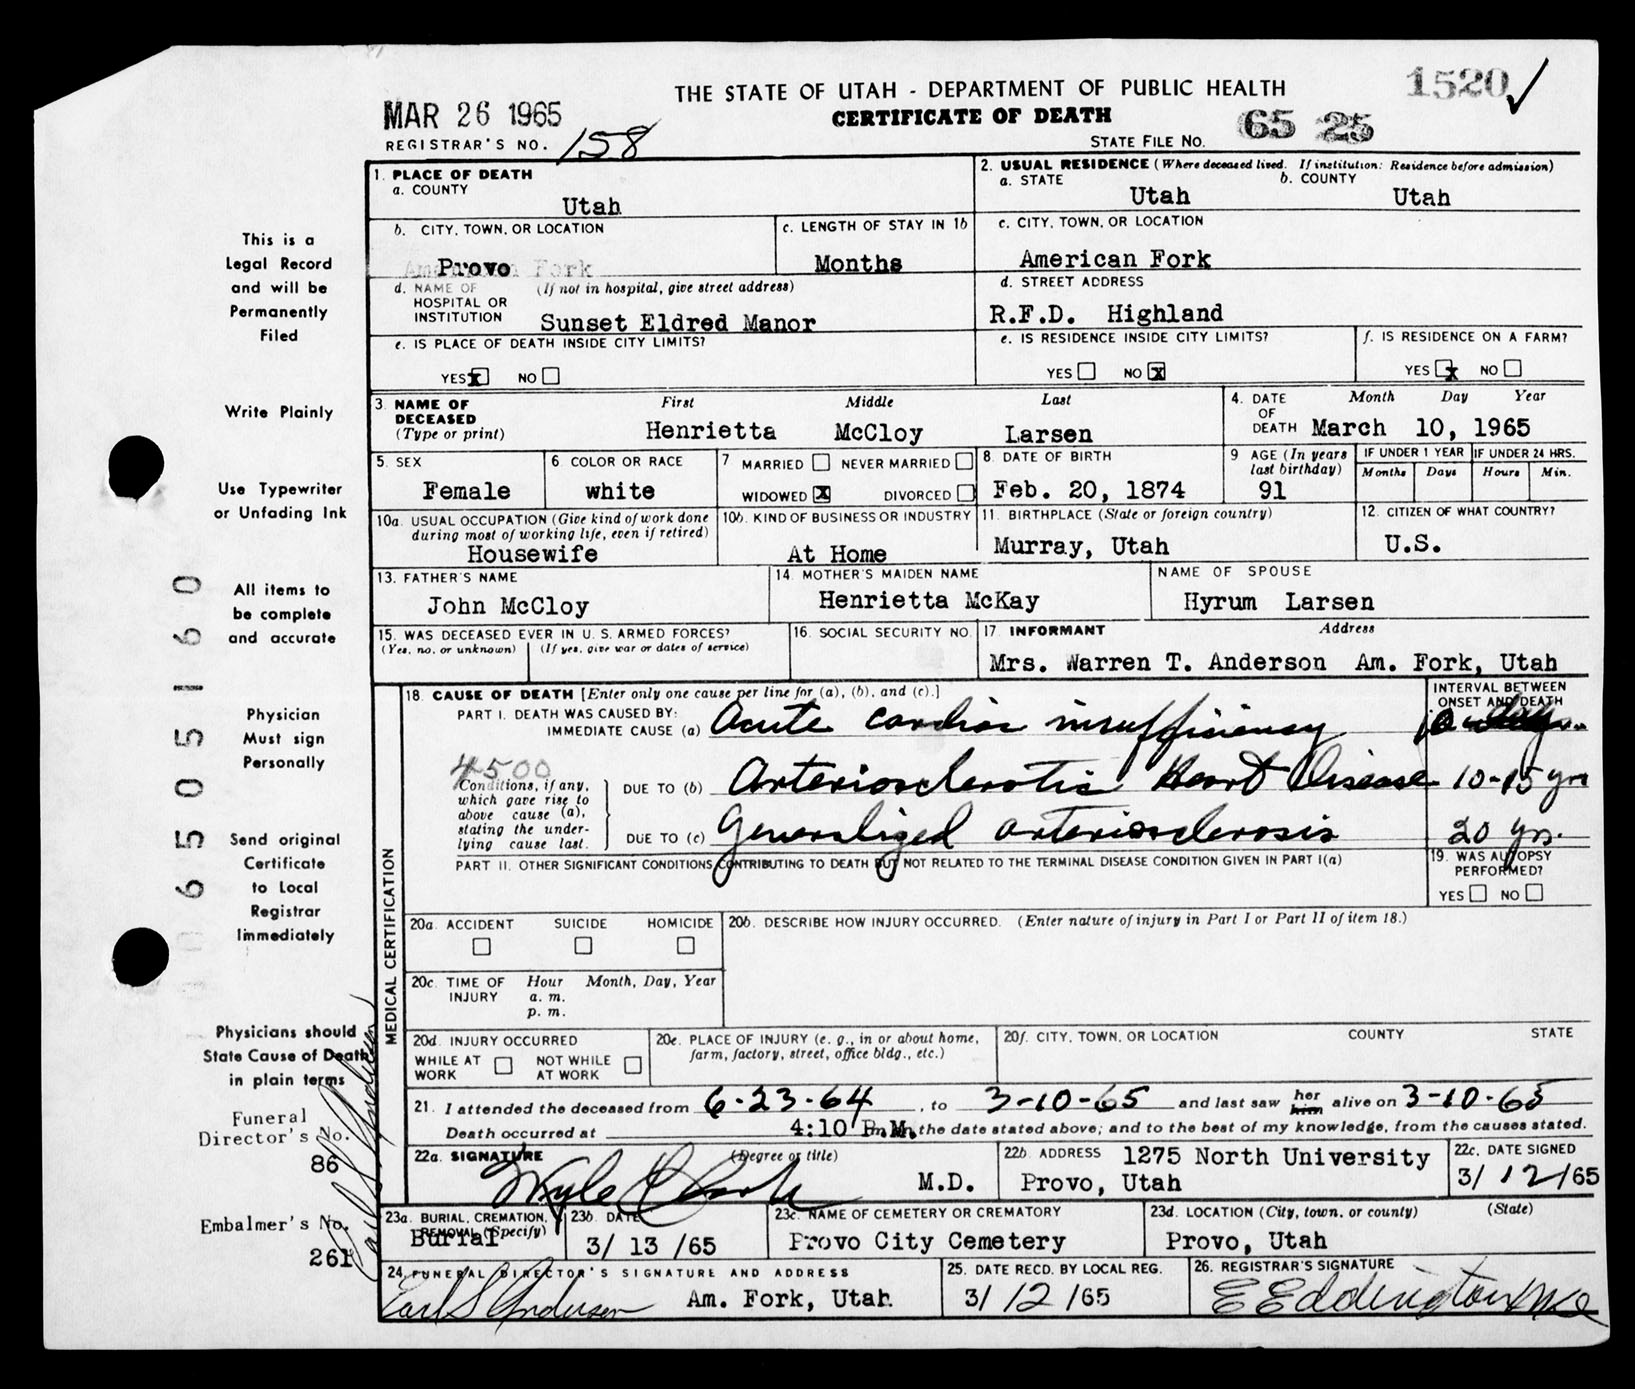 THE STATE OF UTAH - DEPARTMENT OF PUBLIC HEALTH
1520 ✓
MAR 26 1965
CERTIFICATE OF DEATH
REGISTRAR'S NO. 158
STATE FILE NO. 65 25
This is a
Legal Record
and will be
Permanently
Filed
Write Plainly
Use Typewriter
or Unfading Ink
All items to
be complete
and accurate
Physician
Must sign
Personally
Send original
Certificate
to Local
Registrar
Immediately
Physicians should
State Cause of Death
in plain terms
Funeral
Director's No.
86
Embalmer's No.
261
Earl S Anderson
0 6 5 0 5 1 6 0
1. PLACE OF DEATH
a. COUNTY
Utah
2. USUAL RESIDENCE (Where deceased lived. If institution: Residence before admission)
a. STATE Utah b. COUNTY Utah
b. CITY, TOWN, OR LOCATION
Provo
c. LENGTH OF STAY IN 1b
Months
c. CITY, TOWN, OR LOCATION
American Fork
d. NAME OF HOSPITAL OR INSTITUTION (If not in hospital, give street address)
Sunset Eldred Manor
d. STREET ADDRESS
R.F.D. Highland
e. IS PLACE OF DEATH INSIDE CITY LIMITS?
YES X NO
e. IS RESIDENCE INSIDE CITY LIMITS?
YES NO X
f. IS RESIDENCE ON A FARM?
YES X NO
3. NAME OF DECEASED (Type or print) First Middle Last
Henrietta McCloy Larsen
4. DATE OF DEATH Month Day Year
March 10, 1965
5. SEX
Female
6. COLOR OR RACE
white
7 MARRIED NEVER MARRIED
WIDOWED X DIVORCED
8 DATE OF BIRTH
Feb. 20, 1874
9 AGE (In years last birthday)
91
IF UNDER 1 YEAR
Months Days
IF UNDER 24 HRS.
Hours Min.
10a. USUAL OCCUPATION (Give kind of work done during most of working life, even if retired)
Housewife
10b. KIND OF BUSINESS OR INDUSTRY
At Home
11. BIRTHPLACE (State or foreign country)
Murray, Utah
12. CITIZEN OF WHAT COUNTRY?
U.S.
13. FATHER'S NAME
John McCloy
14. MOTHER'S MAIDEN NAME
Henrietta McKay
NAME OF SPOUSE
Hyrum Larsen
15. WAS DECEASED EVER IN U.S. ARMED FORCES?
(Yes, no, or unknown) (If yes, give war or dates of service)
16. SOCIAL SECURITY NO.
17. INFORMANT Address
Mrs. Warren T. Anderson Am. Fork, Utah
MEDICAL CERTIFICATION
18. CAUSE OF DEATH [Enter only one cause per line for (a), (b), and (c).]
INTERVAL BETWEEN ONSET AND DEATH
PART I. DEATH WAS CAUSED BY:
IMMEDIATE CAUSE (a) Acute cardiac insufficiency
4500
Conditions, if any, which gave rise to above cause (a), stating the underlying cause last.
DUE TO (b) Arteriosclerotic Heart Disease 10-15 yrs
DUE TO (c) Generalized arteriosclerosis 20 yrs.
PART II. OTHER SIGNIFICANT CONDITIONS CONTRIBUTING TO DEATH BUT NOT RELATED TO THE TERMINAL DISEASE CONDITION GIVEN IN PART I(a)
19. WAS AUTOPSY PERFORMED?
YES NO
20a. ACCIDENT SUICIDE HOMICIDE
20b. DESCRIBE HOW INJURY OCCURRED. (Enter nature of injury in Part I or Part II of item 18.)
20c. TIME OF INJURY Hour Month, Day, Year
a. m.
p. m.
20d. INJURY OCCURRED
WHILE AT WORK NOT WHILE AT WORK
20e. PLACE OF INJURY (e. g., in or about home, farm, factory, street, office bldg., etc.)
20f. CITY, TOWN, OR LOCATION COUNTY STATE
21. I attended the deceased from 6-23-64, to 3-10-65 and last saw her him alive on 3-10-65
Death occurred at 4:10 P.M. on the date stated above; and to the best of my knowledge, from the causes stated.
22a. SIGNATURE (Degree or title)
M.D.
22b. ADDRESS 1275 North University
Provo, Utah
22c. DATE SIGNED
3/12/65
23a. BURIAL, CREMATION, REMOVAL (Specify)
Burial
23b. DATE
3/ 13 /65
23c. NAME OF CEMETERY OR CREMATORY
Provo City Cemetery
23d. LOCATION (City, town, or county) (State)
Provo, Utah
24. FUNERAL DIRECTOR'S SIGNATURE AND ADDRESS
Earl S Anderson Am. Fork, Utah
25. DATE RECD. BY LOCAL REG.
3/12/65
26. REGISTRAR'S SIGNATURE
E Eddington